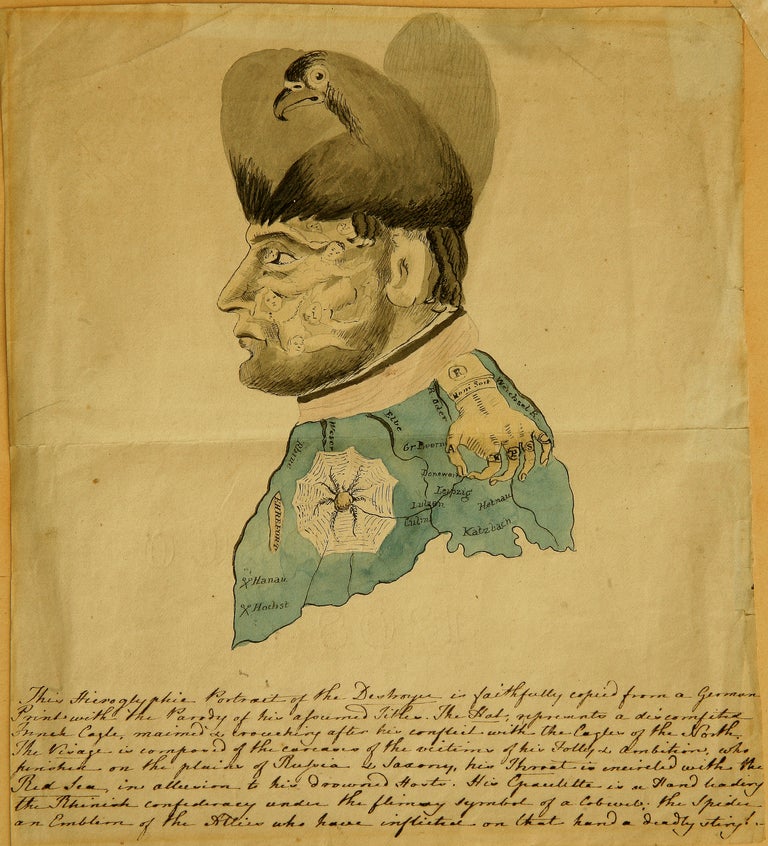 R
Honi Soit
Weichsel R.
R Oder
Elbe
Weser
Rhine
Gr. Beern
A
R
P
S
Leipzig
Lutzen
Culm
Katzbach
EHREFORT
Hanau
Hochst
This Hieroglyphic Portrait of the Destroyer is faithfully copied from a German
Print with the Parody of his assumed Titles. The Hat, represents a discomfited
French Eagle, maimed & crouching after his conflict with the Eagles of the North.
The Visage is composed of the carcases of the victims of his Folly & ambition, who
perished on the plains of Russia & Saxony, his Throat is encircled with the
Red Sea, in allusion to his drowned Hosts. His Epaulette is a Hand leading
the Rhenish confederacy under the flimsy symbol of a Cobweb. the Spider
an Emblem of the Allies who have inflicted on that hand a deadly sting!-